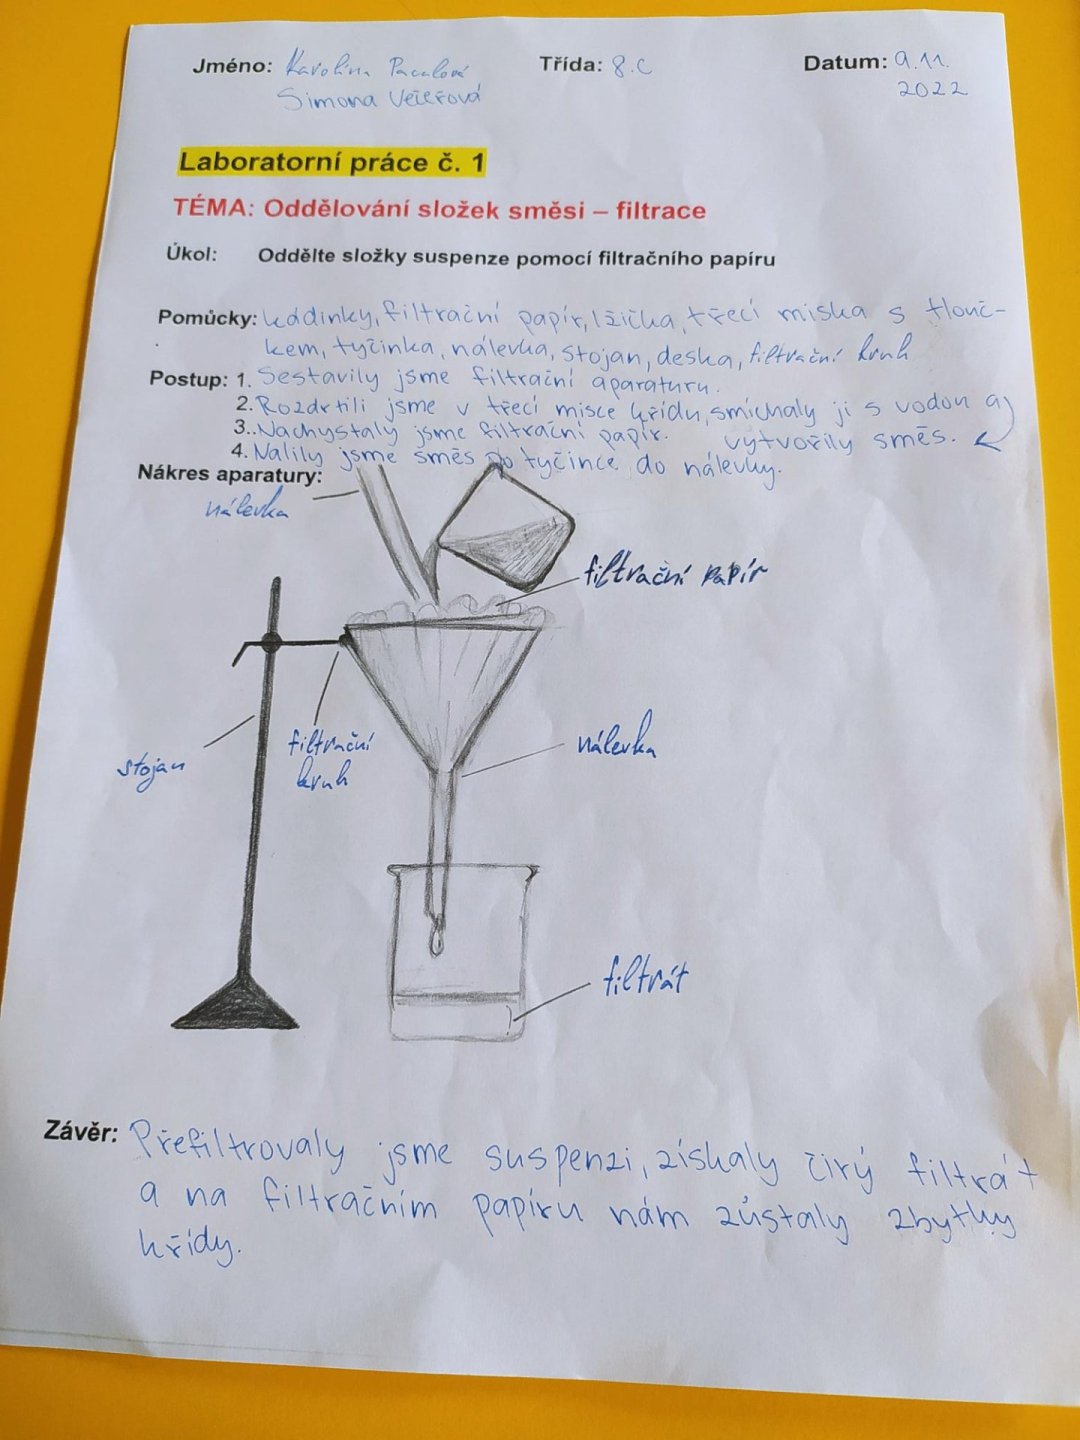 Jméno: Karolína Pacalová Třída: 8.C Datum: 9.11.
Simona Večeřová 2022
Laboratorní práce č. 1
TÉMA: Oddělování složek směsi – filtrace
Úkol: Oddělte složky suspenze pomocí filtračního papíru
Pomůcky: kádinky, filtrační papír, lžička, třecí miska s tlouč-
kem, tyčinka, nálevka, stojan, deska, filtrační kruh
Postup: 1. Sestavily jsme filtrační aparaturu.
2. Rozdrtili jsme v třecí misce křídu, smíchaly ji s vodou a
3.. Nachystaly jsme filtrační papír. vytvořily směs.
4. Nalily jsme směs po tyčince do nálevky.
Nákres aparatury:
nálevka
filtrační papír
filtrační
kruh
nálevka
stojan
filtrát
Závěr: Přefiltrovaly jsme suspenzi, získaly čirý filtrát
a na filtračním papíru nám zůstaly zbytky
křídy.